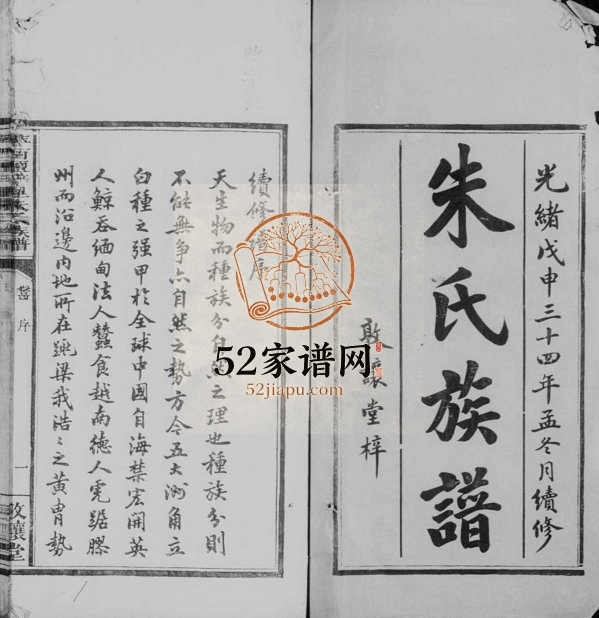 光緒戊申三十四年孟冬月續修
朱氏族譜
敦讓堂梓
續修譜序
天生物而種族分自然之理也種族分則
不能無爭亦自然之勢方今五大洲角立
白種之强甲於全球中國自海禁宏開英
人鯨吞緬甸法人蠶食越南德人虎踞膠
州而沿邊内地所在跳梁我浩〻之黄胄勢
朱氏族譜
序
一
敦讓堂
52家谱网
52jiapu.com